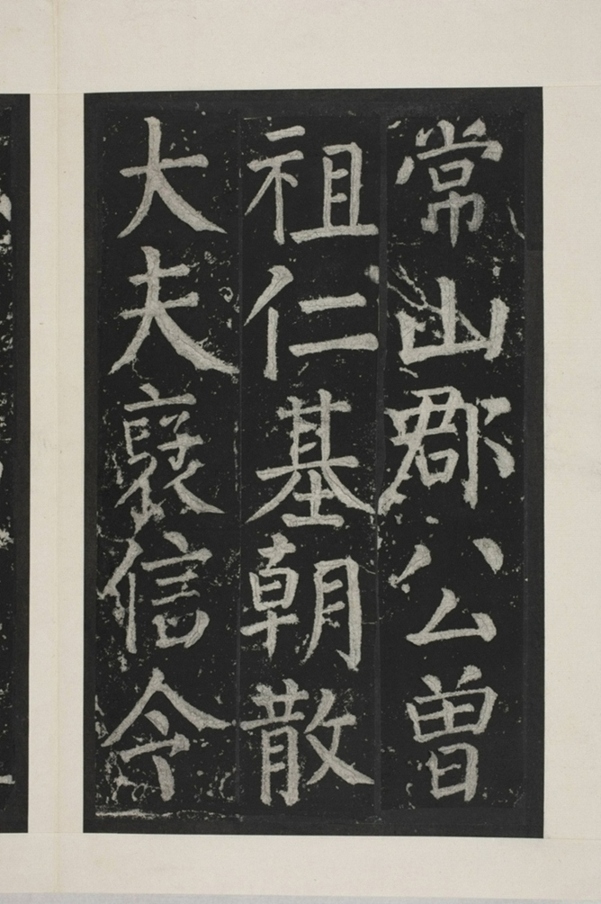 常山郡公曽
祖仁基朝散
大夫襃信令